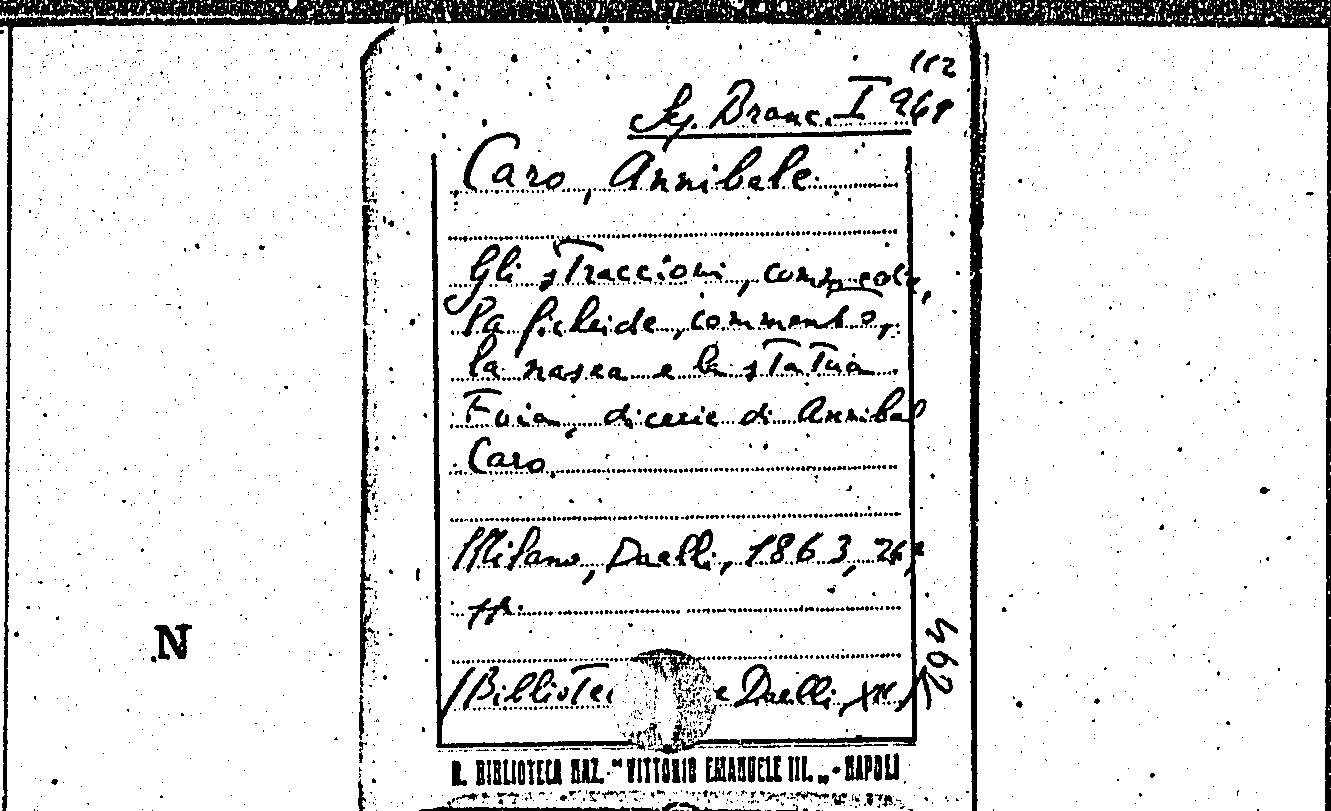 112
Sg. Branc. I 269
Caro, Annibale
Gli straccioni, commedia,
la ficheide, commento,
la nasea e la statua
Foia, dicerie di Annibal
Caro.
Milano, Daelli, 1863, 262
pp.
N
/Bibliotec e Daelli, XII/
462
R. BIBLIOTECA NAZ. "VITTORIO EMANUELE III." - NAPOLI